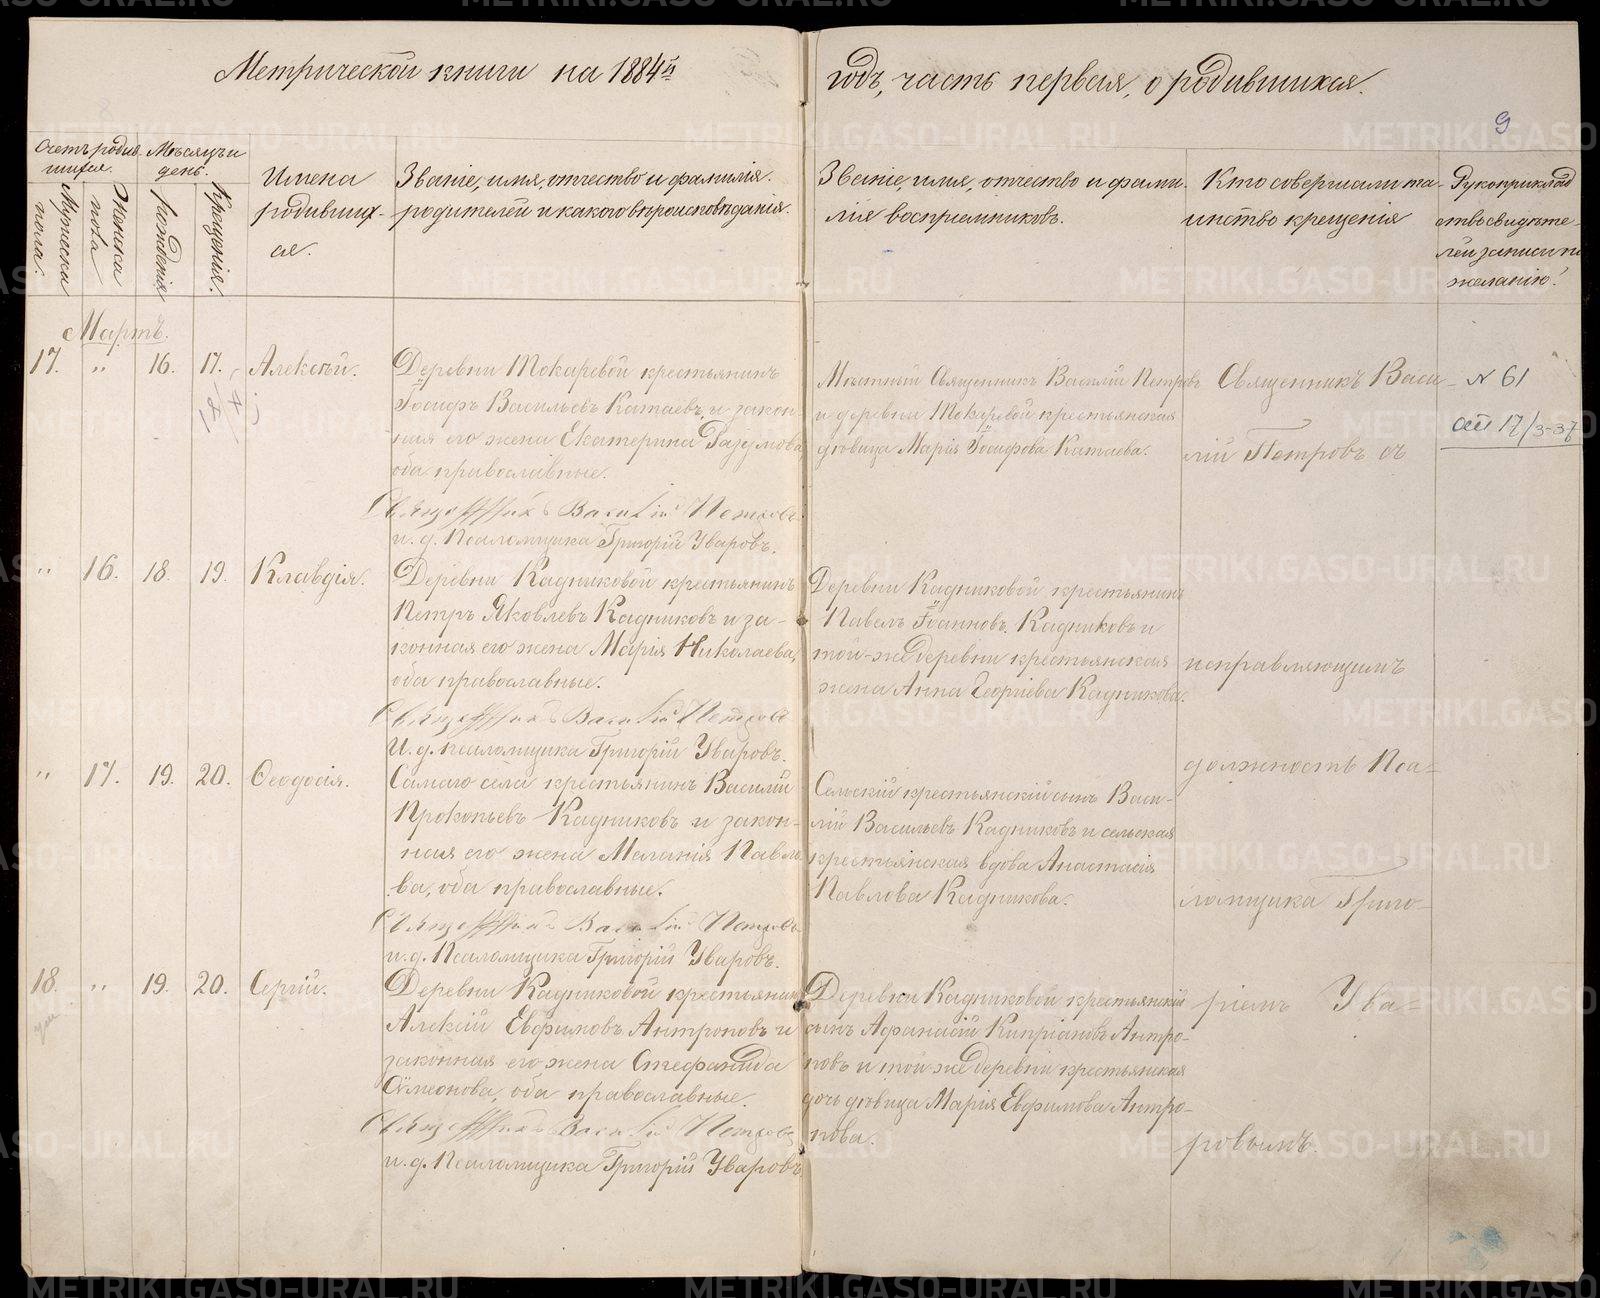 Метрической книги на 1884й годъ, часть первая, о родившихся.
9
Счетъ родив-
шихся.
Мужеска
пола.
Женска
пола
Мѣсяцъ и
день.
рожденія
Крещенія.
Имена
родивших-
ся.
Званіе, имя, отчество и фамилія
родителей и какого вѣроисповѣданія.
Званіе, имя, отчество и фами-
лія воспріемниковъ.
Кто совершалъ та-
инство крещенія
Рукоприклад
ство свидѣте-
лей записи по
желанію.
Мартъ.
17. " 16. 17. Алексѣй.
Деревни Токаревой крестьянинъ
Іосифъ Васильевъ Катаевъ и закон-
ная его жена Екатерина
оба православные.
Священникъ Василій Петровъ
и. д. Псаломщика Григорій Уваровъ.
Мѣстный Священникъ Василій Петровъ
и деревни Токаревой крестьянская
дѣвица Марія Іосифова Катаева.
Священникъ Васи-
лій Петровъ съ
№ 61
17/3-37
" 16. 18. 19. Клавдія.
Деревни Кадниковой крестьянинъ
Петръ Яковлевъ Кадниковъ и за-
конная его жена Марія Николаева,
оба православные.
Священникъ Василій Петровъ
И. д. псаломщика Григорій Уваровъ.
Деревни Кадниковой крестьянинъ
Павелъ Іоанновъ Кадниковъ и
той-же деревни крестьянская
жена Анна Георгіева Кадникова.
исправляющимъ
должность Пса-
" 17. 19. 20. Ѳеодосія.
Самаго села крестьянинъ Василій
Прокопьевъ Кадниковъ и закон-
ная его жена Меланія Павло
ва, оба православные.
Священникъ Василій Петровъ
и. д. Псаломщика Григорій Уваровъ.
Сельскій крестьянскій сынъ Васи-
лій Васильевъ Кадниковъ и сельская
крестьянская вдова Анастасія
Павлова Кадникова.
ломщика Григо-
18. " 19. 20. Сергій.
Деревни Кадниковой крестьянинъ
Алексій Евфимовъ Антроповъ и
законная его жена Стефанида
Сѵмеонова, оба православные.
Священникъ Василій Петровъ
и. д. Псаломщика Григорій Уваровъ
Деревни Кадниковой крестьянскій
сынъ Афанасій Кипріановъ Антро-
повъ и той же деревни крестьянская
дочь дѣвица Марія Евфимова Антро-
пова.
ріемъ Ува-
ровымъ.
METRIKI.GASO-URAL.RU